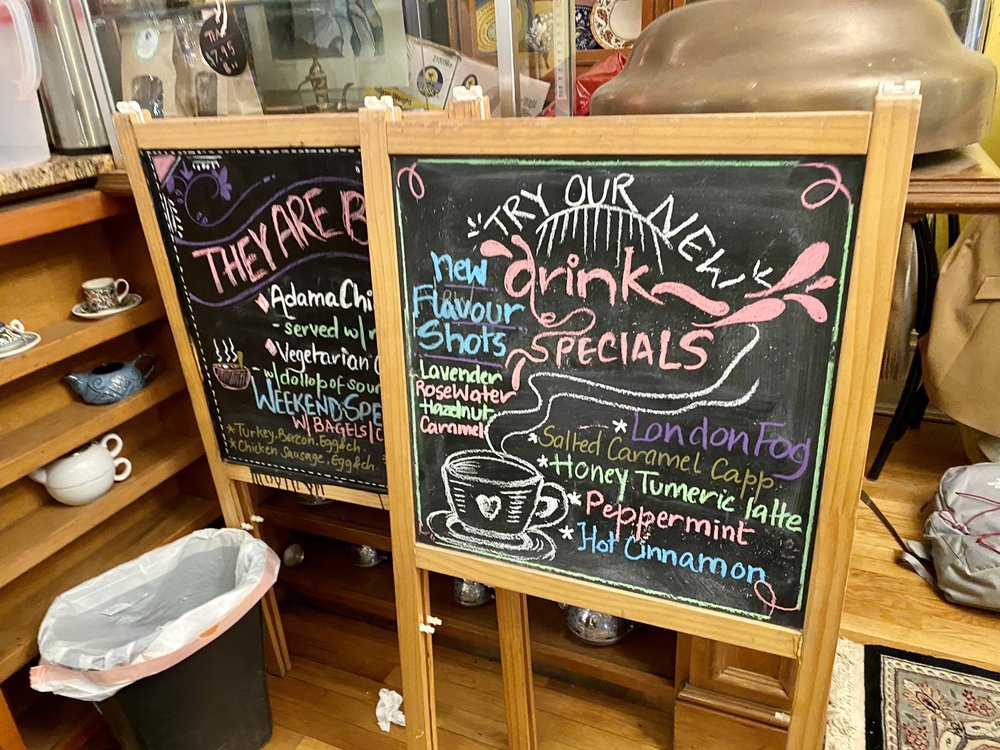 THEY ARE B
AdamaChi
- served w/
Vegetarian
- w/dollop of sour
WEEKEND SPE
W/ BAGELS/C
*Turkey. Beacon. Egg&ch
*Chicken Sausage. Egg&ch
TRY OUR NEW
drink
SPECIALS
new
Flavour
Shots
Lavender
RoseWater
Hazelnut
Caramel
*London Fog
*Salted Caramel Capp
*Honey Tumeric latte
*Peppermint
*Hot Cinnamon